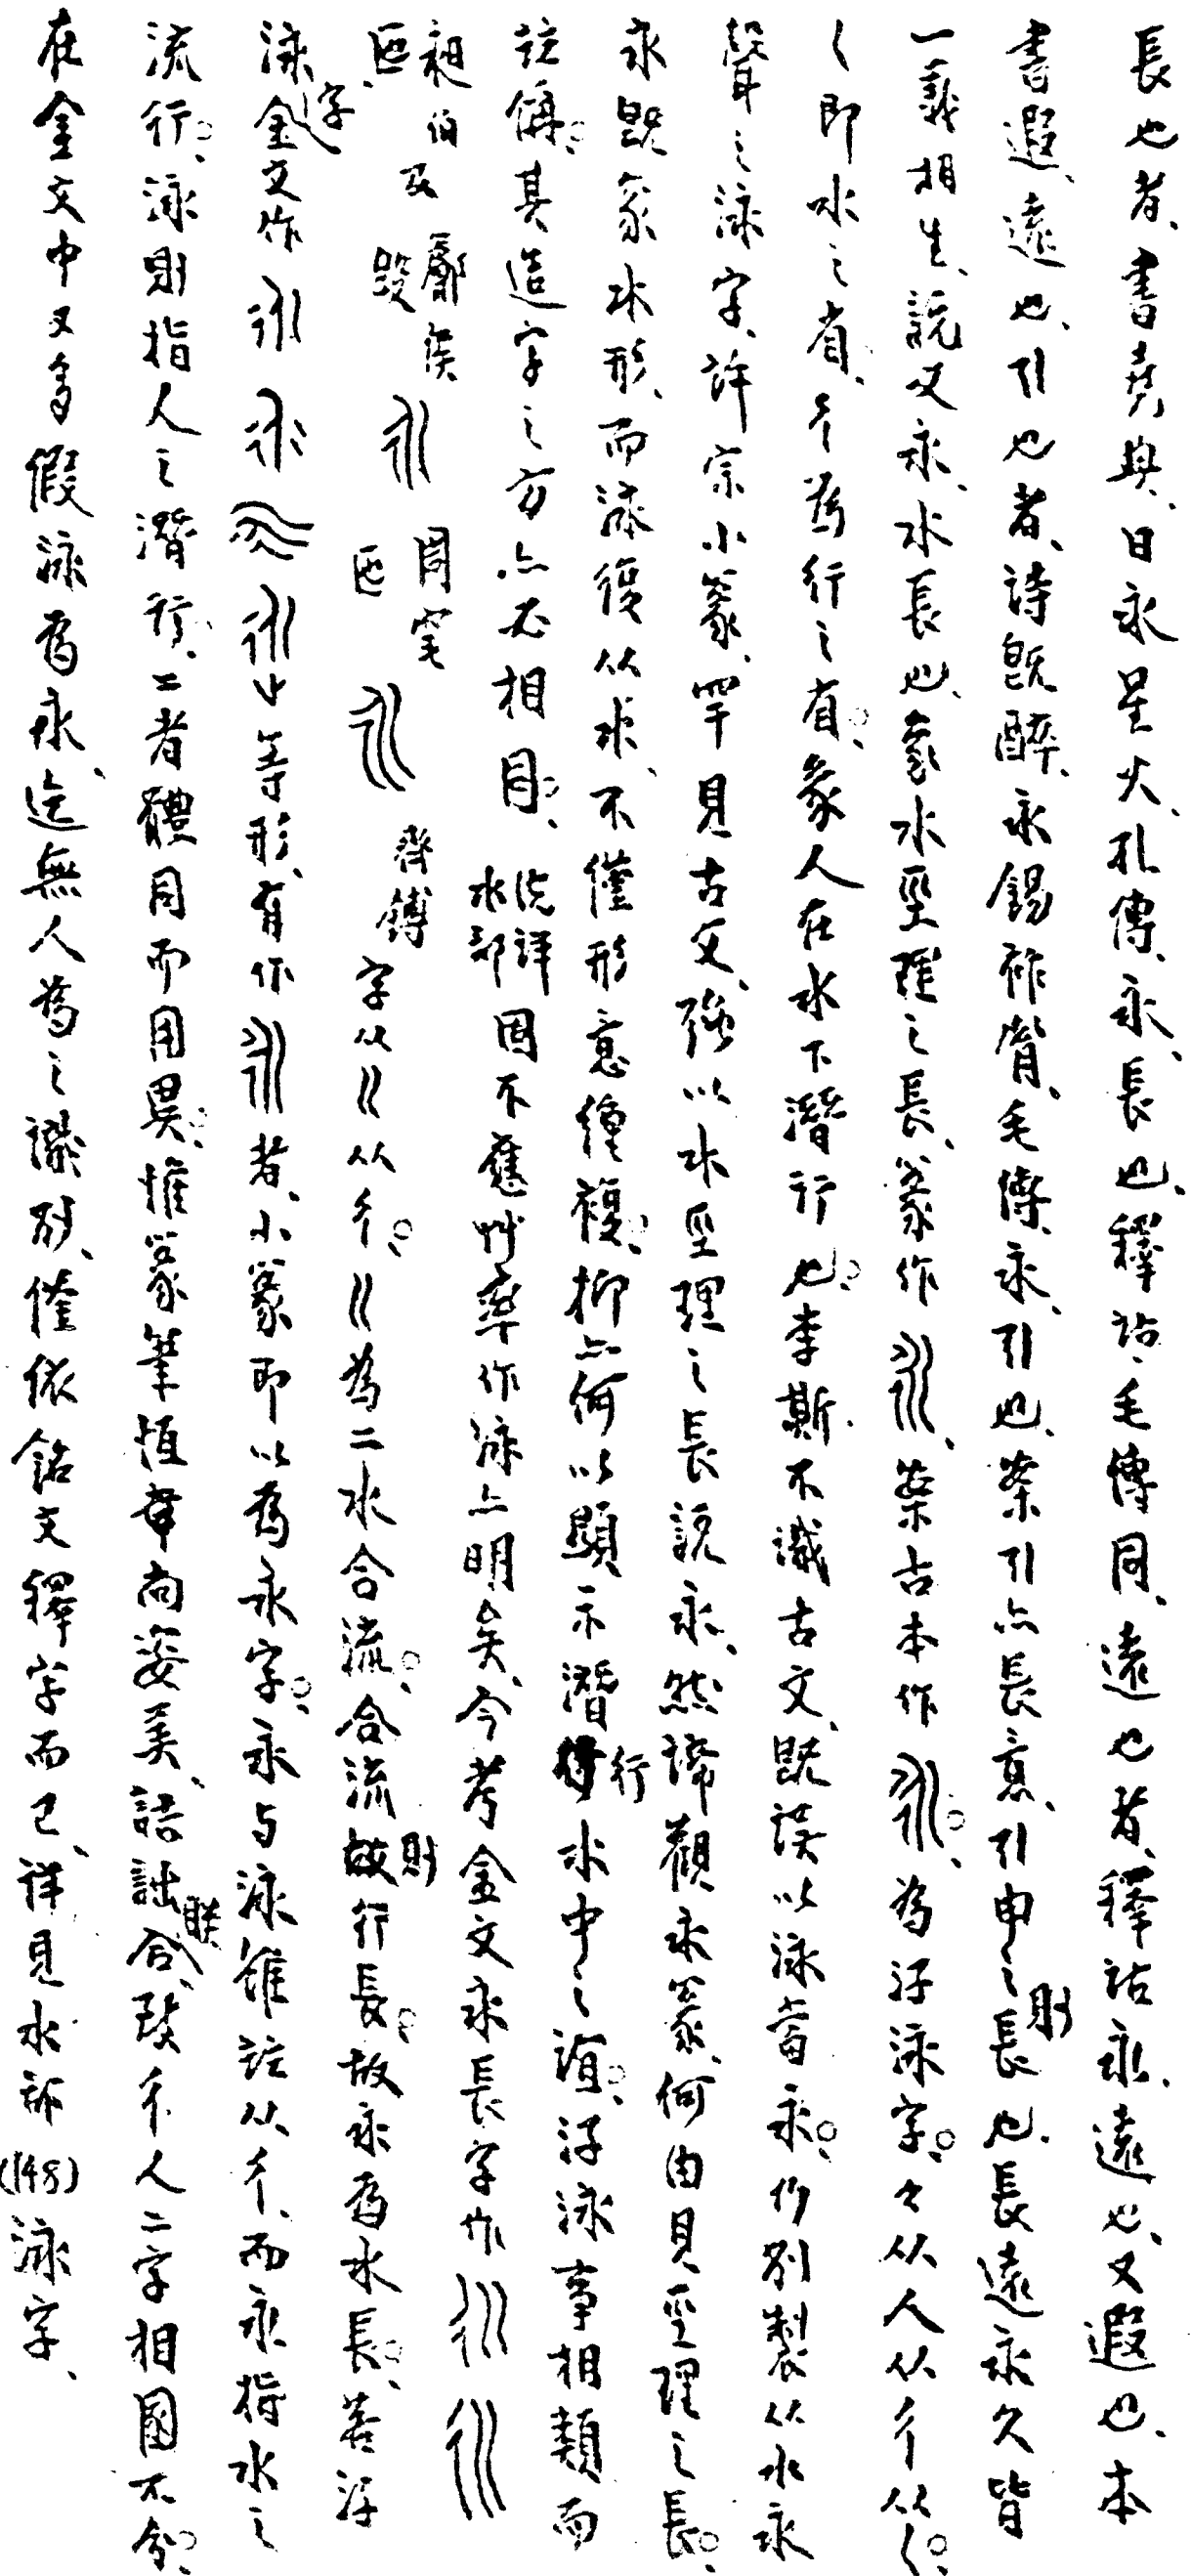 長也者、書堯典、日永星火、孔傳、永、長也、釋詁、毛傳同、遠也者、釋詁、永、遠也、又遐也、本
書遐、遠也、引也者、詩既醉、永錫祚胤、毛傳、永、引也、案引亦長意、引申之則長也、長遠永久皆
一義相生、說文永、水長也、象水巠理之長、篆作、案古本作、為泭泳字、々从人从彳从乀、
乀即水之省、彳為行之省、象人在水下潛行也、李斯不識古文、既誤以泳當永、乃別製从水永
聲之泳字、許宗小篆、罕見古文、強以水巠理之長說永、然諦觀永篆、何由見巠理之長、
永既象水形、而泳復从水、不僅形意緟複、抑亦何以顯示潛行水中之誼、泭泳事相類而
誼僢、其造字之方亦必相同、說詳水部固不應艸率作泳亦明矣、今考金文永長字作
昶伯匜 及 郾侯毀 周㝉匜 齊鎛 字从〣从彳、〣為二水合流、合流則行長、故永為水長、若泭
泳字、金文作等形、有作者、小篆即以為永字、永与泳雖誼从彳、而永指水之
流行、泳則指人之潛行、二者體同而用異、惟篆筆恆牽尚姿美、詰詘合聯、致彳人二字相圂不分、
在金文中又多假泳為永、迄無人為之識別、僅依銘文釋字而已、詳見水部(148)泳字、